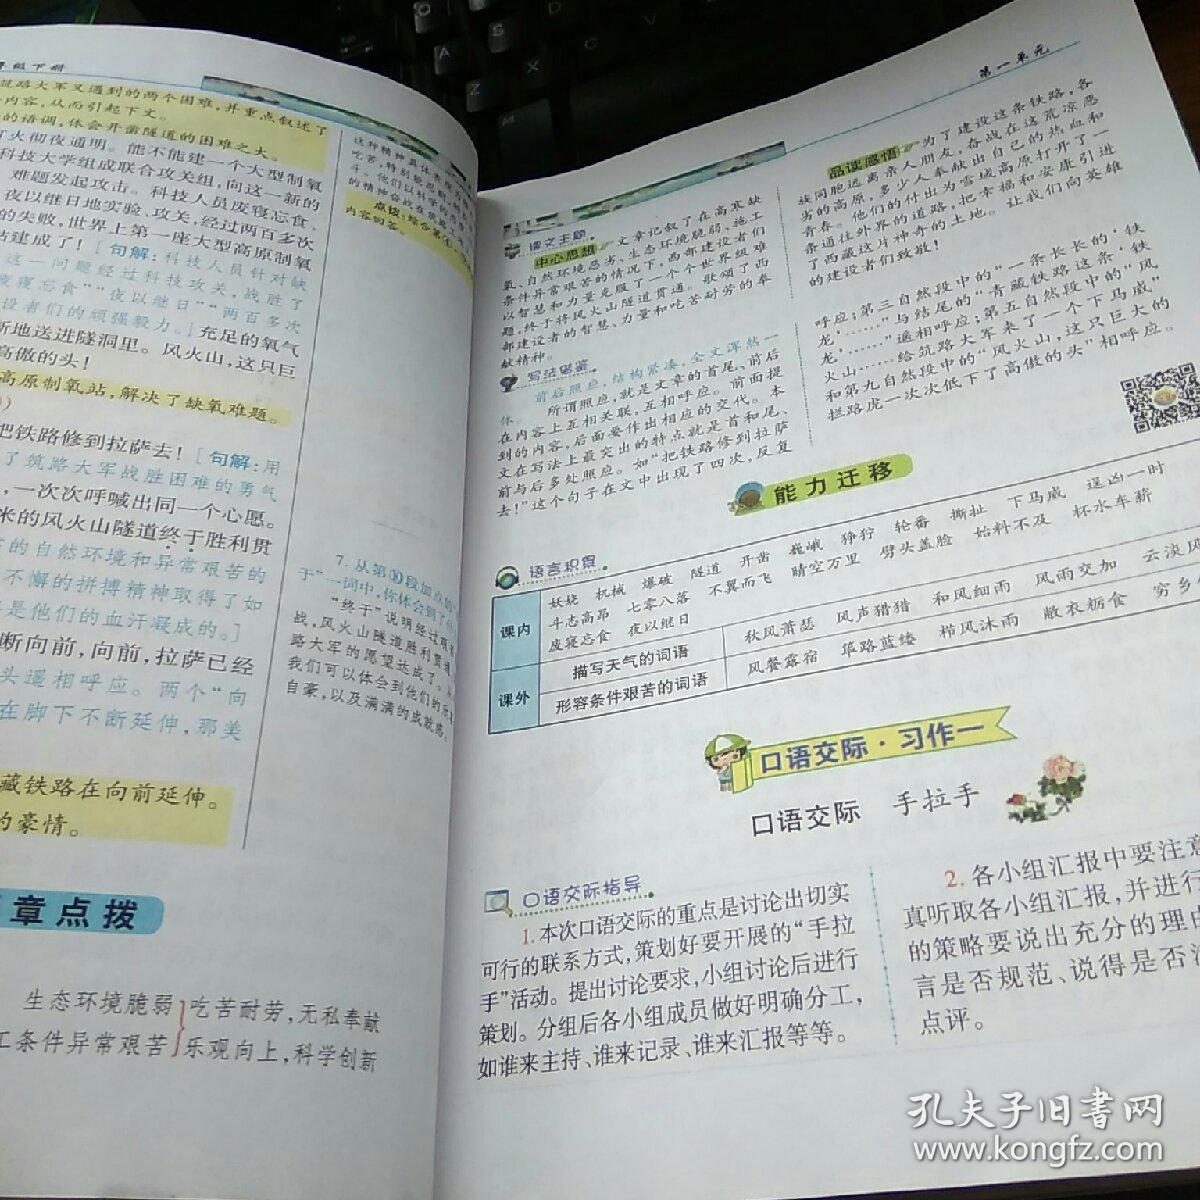 年级下册
筑路大军又遇到的两个困难，并重点叙述了
内容，从而引起下文。
的语调，体会开凿隧道的困难之大。
灯火彻夜通明。能不能建一个大型制氧
科技大学组成联合攻关组，向这一新的
难题发起攻击。科技人员废寝忘食、
夜以继日地实验、攻关，经过两百多次
的失败，世界上第一座大型高原制氧
站建成了！[句解：科技人员针对缺
这一问题经过科技攻关，战胜了
废寝忘食”“夜以继日”“两百多次
设者们的顽强毅力。]充足的氧气
断地送进隧洞里。风火山，这只巨
高傲的头！
高原制氧站，解决了缺氧难题。
把铁路修到拉萨去！[句解：用
了筑路大军战胜困难的勇气
，一次次呼喊出同一个心愿。
米的风火山隧道终于胜利贯
的自然环境和异常艰苦的
不懈的拼搏精神取得了如
是他们的血汗凝成的。]
断向前，向前，拉萨已经
头遥相呼应。两个“向
在脚下不断延伸，那美
藏铁路在向前延伸。
的豪情。
章点拨
生态环境脆弱
工条件异常艰苦
吃苦耐劳，无私奉献
乐观向上，科学创新
这种精神具体表现
吃苦、特别能忍耐
斗。他们以科学的态
的精神奋战在
点拨：综合第
内容回答。
7. 从第⑩段加点的“
于”一词中，你体会到了什
“终于”说明经过艰
战，风火山隧道胜利贯通
路大军的愿望达成了。从
我们可以体会到他们的乐
自豪，以及满满的成就感。
第一单元
课文主题
中心思想 文章记叙了在高寒缺
氧、自然环境恶劣、生态环境脆弱、施工
条件异常艰苦的情况下，西部建设者们
以智慧和力量克服了一个个世界级难
题，终于将风火山隧道贯通。歌颂了西
部建设者的智慧、力量和吃苦耐劳的奉
献精神。
写法借鉴
前后照应，结构紧凑，全文浑然一
体。
所谓照应，就是文章的首尾、前后
在内容上互相关联，互相呼应。前面提
到的内容，后面要作出相应的交代。本
文在写法上最突出的特点就是首和尾、
前与后多处照应。如“把铁路修到拉萨
去！”这个句子在文中出现了四次，反复
品读感悟 为了建设这条铁路，各
族同胞远离亲人朋友，奋战在这荒凉恶
劣的高原，多少人奉献出自己的热血和
青春。他们的付出为雪域高原打开了一
条通往外界的道路，把幸福和安康引进
了西藏这片神奇的土地。让我们向英雄
的建设者们致敬！
呼应；第三自然段中的“一条长长的‘铁
龙’……”与结尾的“青藏铁路这条‘铁
龙’……”遥相呼应；第五自然段中的“风
火山……给筑路大军来了一个下马威”
和第九自然段中的“风火山，这只巨大的
拦路虎一次次低下了高傲的头”相呼应。
能力迁移
语言积累
课内
妖娆 机械 爆破 隧道 开凿 巍峨 狰狞 轮番 撕扯 下马威 逞凶一时
斗志高昂 七零八落 不翼而飞 晴空万里 劈头盖脸 始料不及 杯水车薪
废寝忘食 夜以继日
课外
描写天气的词语
秋风萧瑟 风声猎猎 和风细雨 风雨交加 云淡风
形容条件艰苦的词语
风餐露宿 筚路蓝缕 栉风沐雨 敝衣粝食 穷乡
口语交际·习作一
口语交际 手拉手
口语交际指导
1. 本次口语交际的重点是讨论出切实
可行的联系方式，策划好要开展的“手拉
手”活动。提出讨论要求，小组讨论后进行
策划。分组后各小组成员做好明确分工，
如谁来主持、谁来记录、谁来汇报等等。
2. 各小组汇报中要注意
真听取各小组汇报，并进行
的策略要说出充分的理由
言是否规范、说得是否清
点评。
孔夫子旧书网
www.kongfz.com